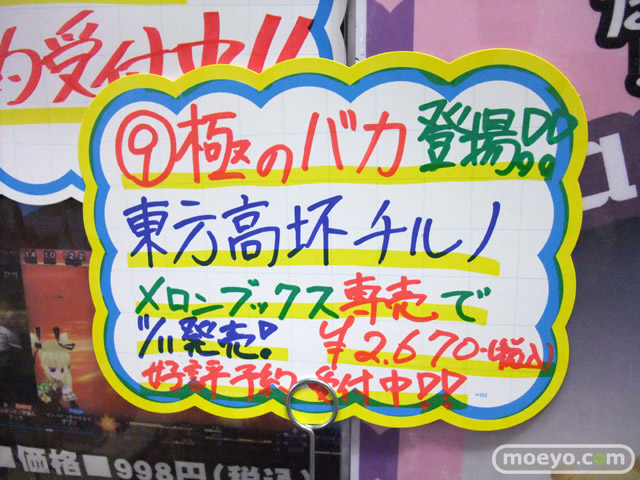 約受付中!!
⑨極のバカ 登場!!
東方高坏チルノ
メロンブックス専売で
'/11発売! ¥2.670-(税込)
好評予約受付中!!
■価格■998円(税込)
moeyo.com